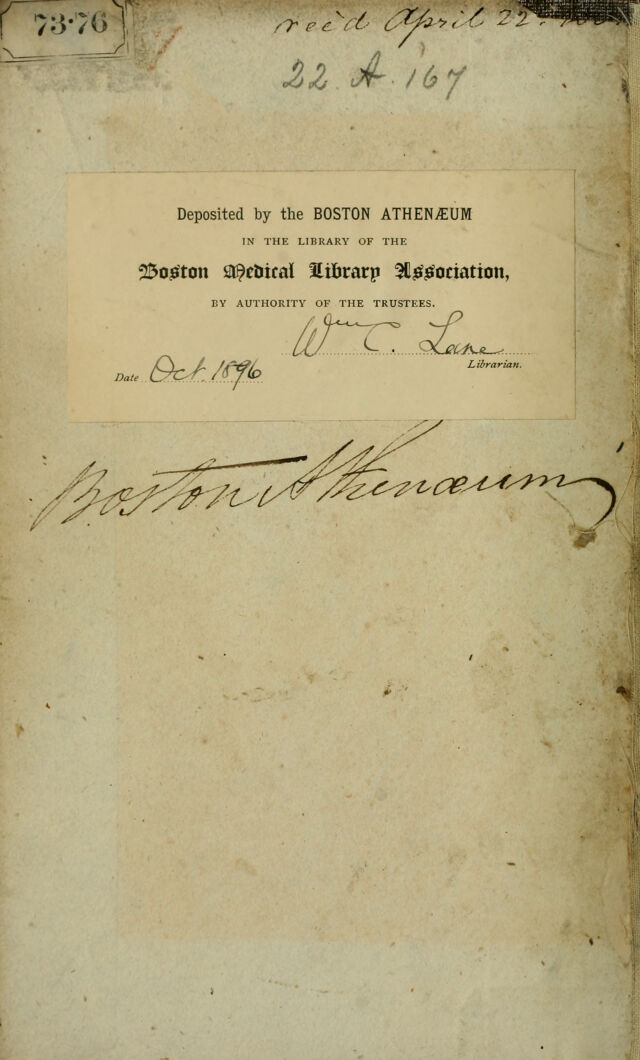 73·76
rec'd April 22.
22 A 167
Deposited by the BOSTON ATHENÆUM
IN THE LIBRARY OF THE
Boston Medical Library Association,
BY AUTHORITY OF THE TRUSTEES.
Wm C. Lane
Librarian.
Date Oct. 1896
Boston Athenæum